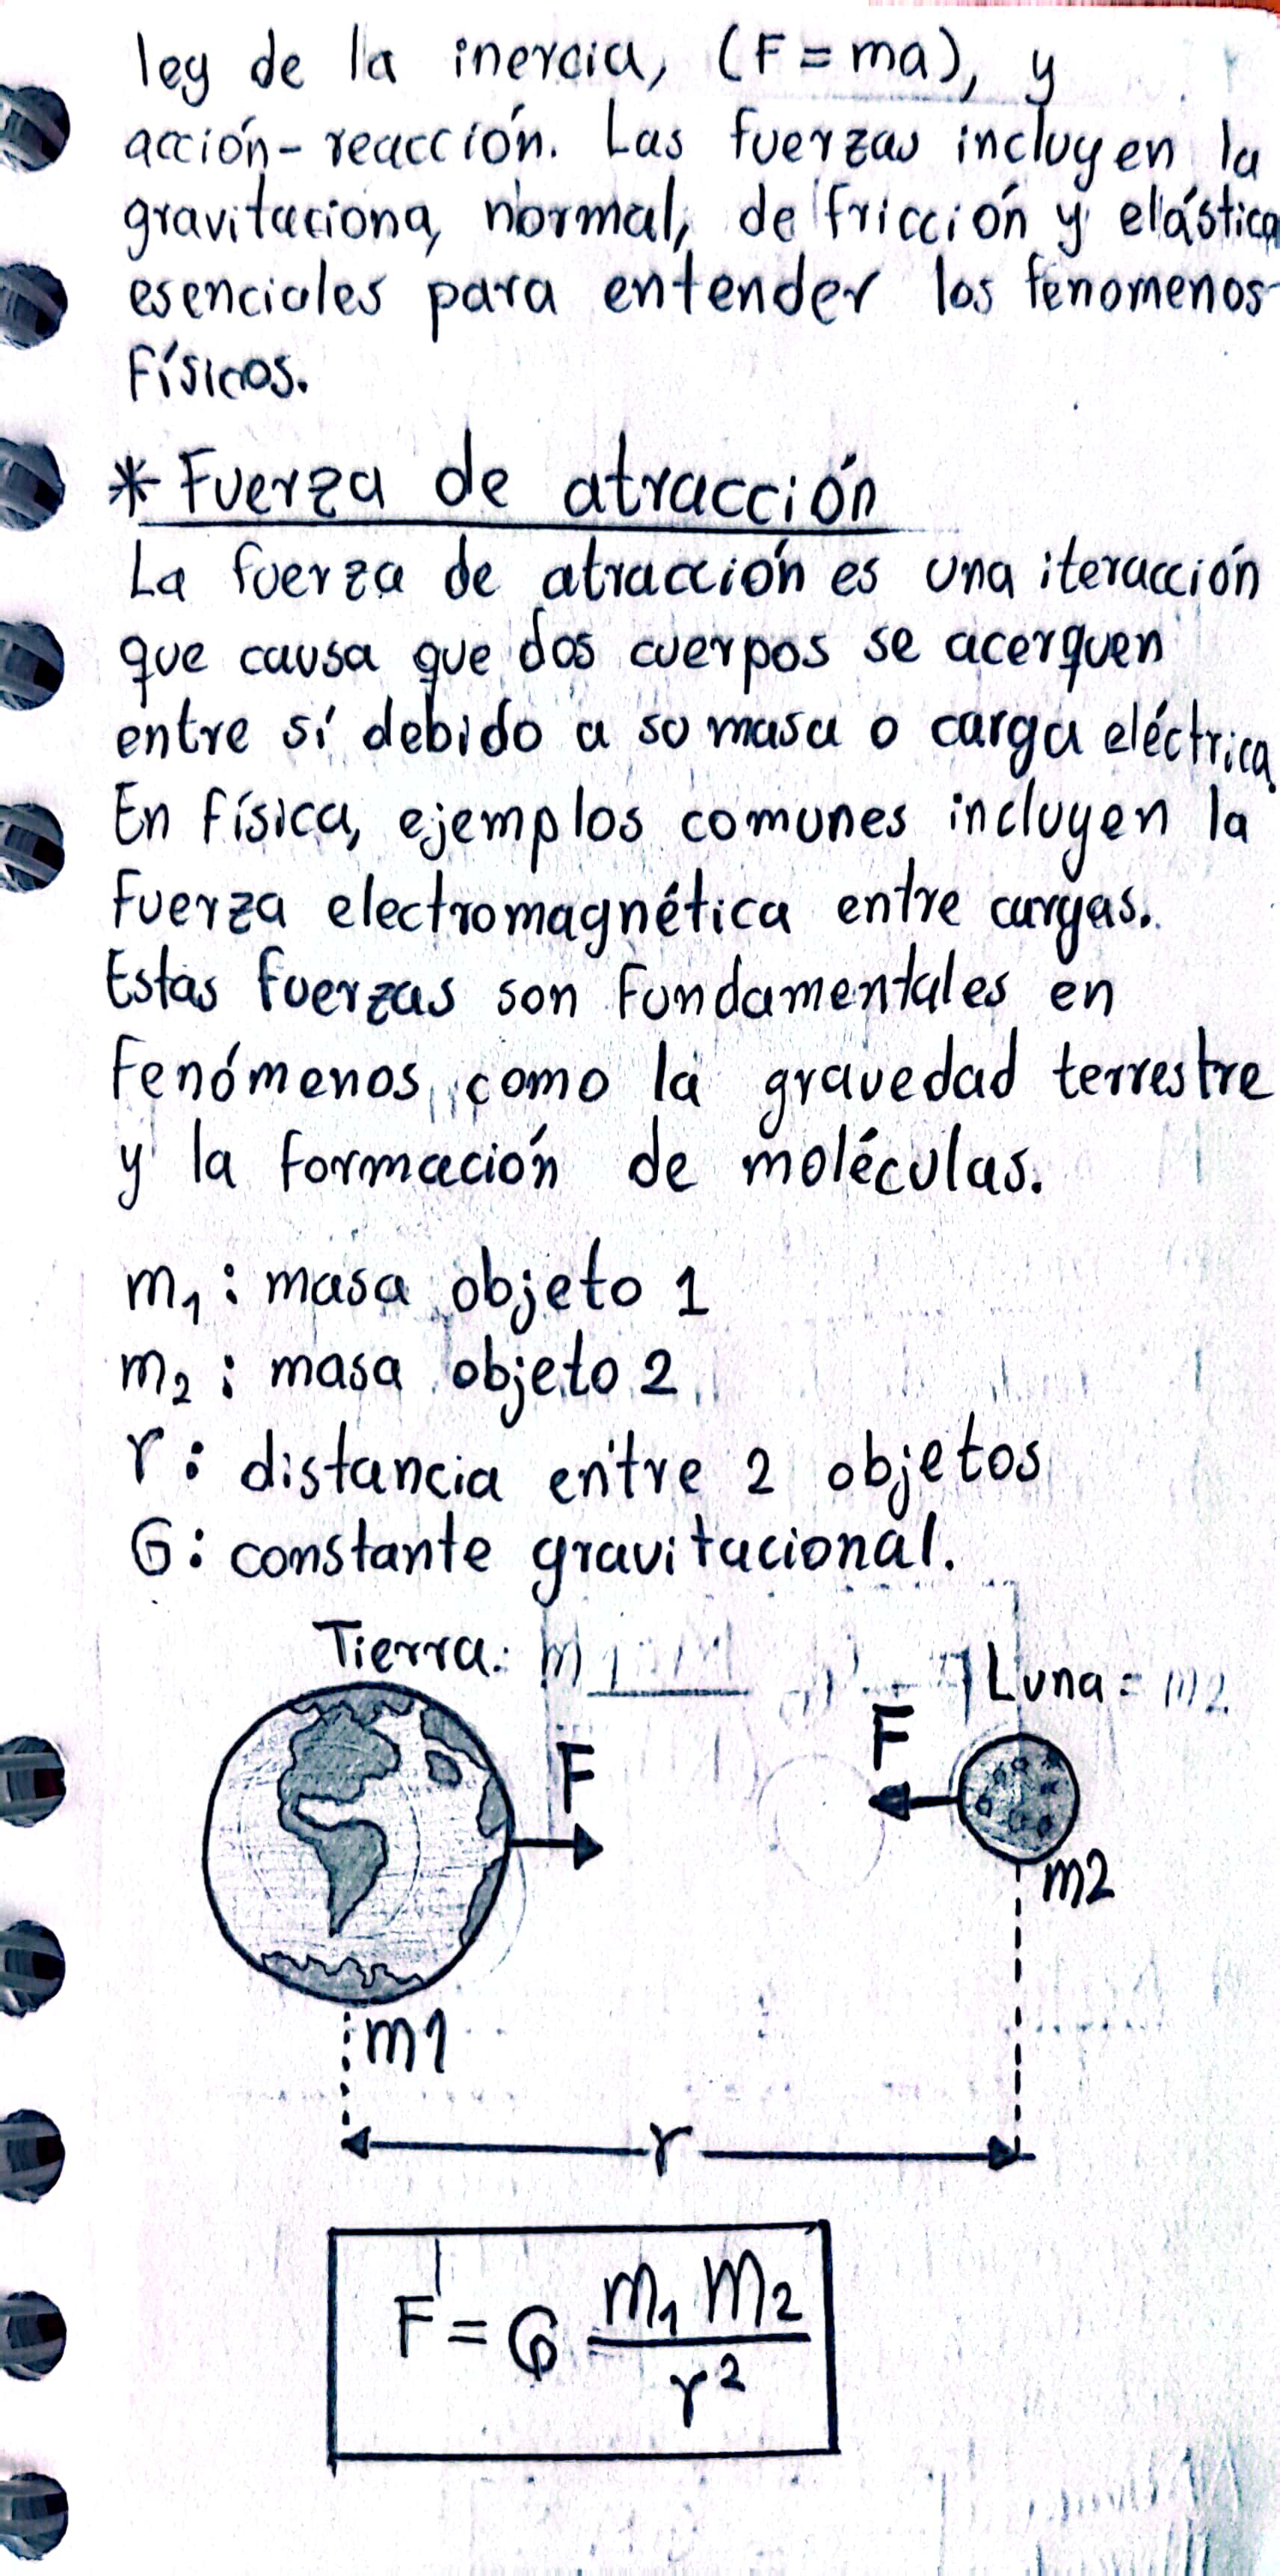 ley de la inercia, (F = ma), y
acción-reacción. Las fuerzas incluyen la
gravitaciona, normal, de fricción y elástica
esenciales para entender los fenomenos
Físicos.
* Fuerza de atracción
La fuerza de atracción es una iteracción
que causa que dos cuerpos se acerquen
entre sí debido a su masa o carga eléctrica.
En física, ejemplos comunes incluyen la
fuerza electromagnética entre cargas.
Estas fuerzas son fundamentales en
Fenómenos como la gravedad terrestre
y la formación de moléculas.
m₁: masa objeto 1
m₂: masa objeto 2
r: distancia entre 2 objetos
G: constante gravitacional.
Tierra: m1
Luna = m2
F
F
m2
m1
r
F = G m₁ m₂ / r²